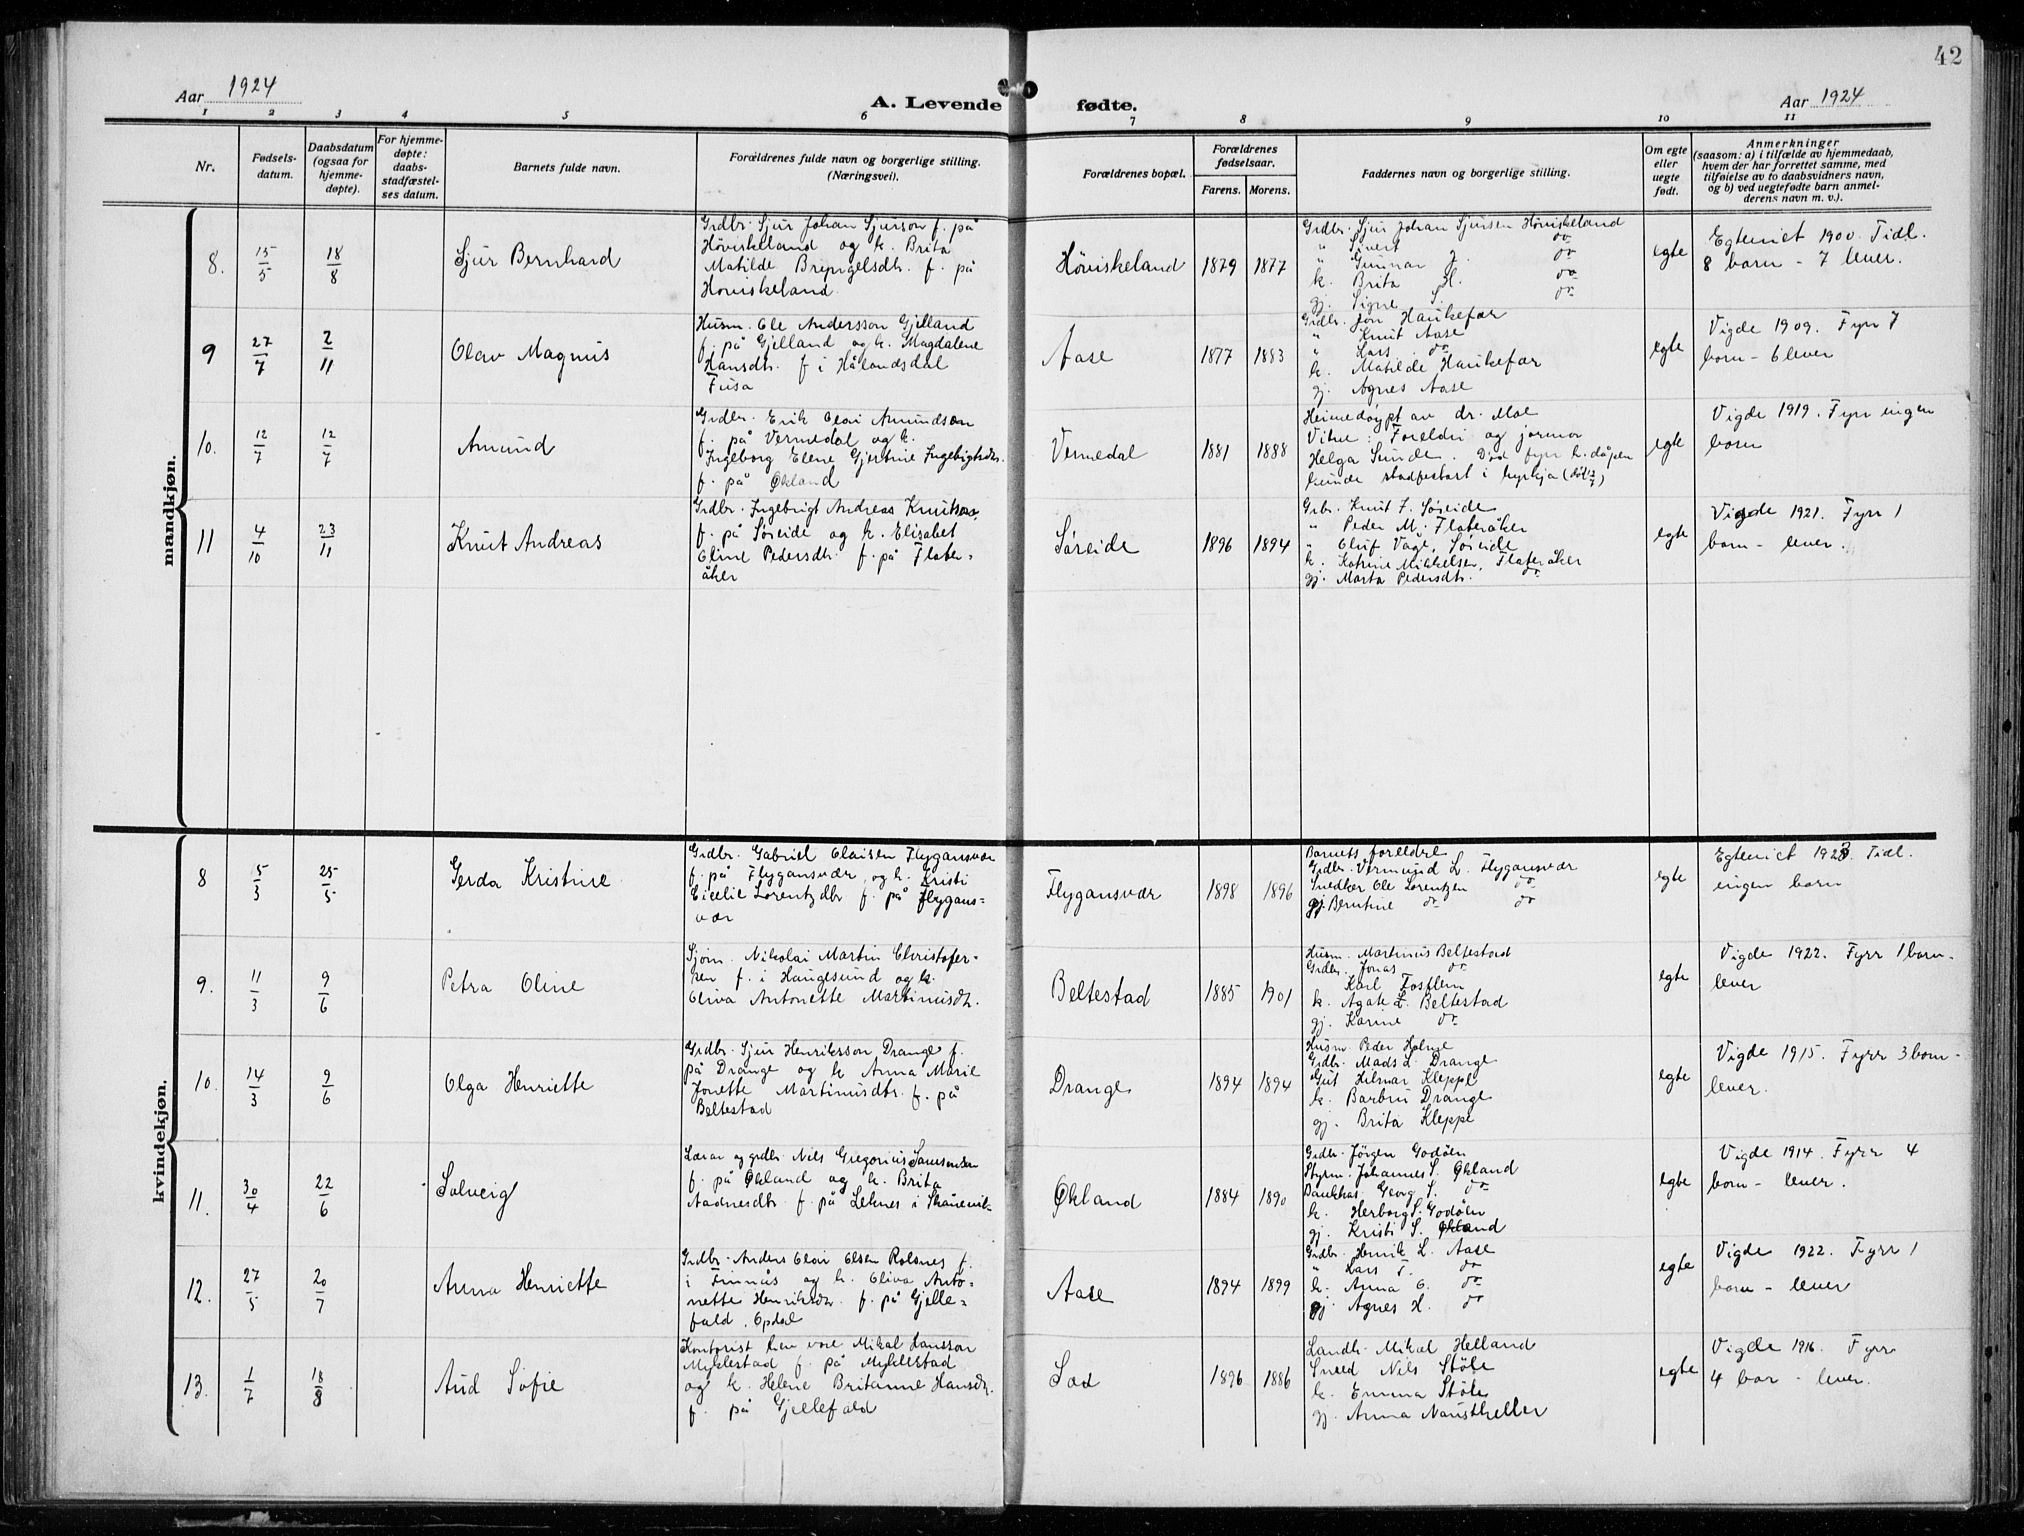 42
Aar 1924
A. Levende fødte.
Aar 1924
1 2 3 4 5 6 7 8 9 10 11
Nr.
Fødsels-
datum.
Daabsdatum
(ogsaa for
hjemme-
døpte).
For hjemme-
døpte:
daabs-
stadfæstel-
ses datum.
Barnets fulde navn.
Forældrenes fulde navn og borgerlige stilling.
(Næringsvei).
Forældrenes bopæl.
Forældrenes
fødselsaar.
Farens. Morens.
Faddernes navn og borgerlige stilling.
Om egte
eller
uegte
født.
Anmerkninger
(saasom: a) i tilfælde av hjemmedaab,
hvem der har forrettet samme, med
tilføielse av to daabsvidners navn,
og b) ved uegtefødte barn anmel-
derens navn m. v.).
mandkjøn.
8. 15/5 18/8
Sjur Bernhard
Grdbr. Sjur Johan Sjurson f. på
Høviskeland og k. Brita
Matilde Bryngelsdtr. f. på
Høviskeland.
Høviskeland 1879 1877
Grdbr. Sjur Johan Sjursen Høviskeland
" Sivert do
" Gunnar J. do
k. Brita H. do
gj. Signe S. do
egte
Egteviet 1900. Tidl.
8 born - 7 lever.
9 27/7 2/11
Olav Magnus
Husm. Ole Andersson Gjelland
f. på Gjelland og k. Magdalene
Hansdtr. f i Hålandsdal
Fusa
Aase 1877 1883
Grdbr. Jon Haukefær
" Knut Aase
" Lars do
k. Matilde Haukefær
gj. Agnes Aase
egte
Vigde 1909. Fyrr 7
born - 6 lever
10. 12/7 12/7
Amund
Grdbr. Erik Olai Amundsen
f. på Vermedal og k.
Ingeborg Elene Gjertine Ingebrigtsdtr.
f. på Økland
Vermedal 1881 1888
Heimedøypt av dr. Moe
Vitne: Foreldri og jormor
Helga Sunde. Død fyrr h. dåpen
kunde stadfestast i kyrkja
egte
Vigde 1919. Fyrr ingen
born
11 4/10 23/11
Knut Andreas
Grdbr. Ingebrigt Andreas Knutson,
f. på Søreide og k. Elisabet
Oline Pedersdtr. f. på Flater-
åker
Søreide 1896 1894
Grbr. Knut I. Søreide
" Peder M. Flateråker
" Oluf Våge, Søreide
k. Katrine Mikkelsen, Flateråker
gj. Marta Pedersdtr. do
egte
Vigde 1921. Fyrr 1
born - lever.
kvindekjøn.
8 5/3 25/5
Gerda Kristine
Grdbr. Gabriel Olaisen Flygansvær
f. på Flygansvær, og k. Kristi
Cicelie Lorentzdtr f. på Flygans-
vær
Flygansvær 1898 1896
Barnets foreldre
Grdbr. Vermund L. Flygansvær
Snedker Ole Lorentzen do
gj. Berntine do do
egte
Egteviet 1923. Tidl.
ingen born
9. 11/3 9/6
Petra Oline
Sjøm. Nikolai Martin Christofer-
sen f. i Haugesund og k.
Oliva Antonette Martinusdtr.
Beltestad 1885 1901
Husm. Martinus Beltestad
Grdbr. Jonas do
Karl Tofflem
k. Agate L. Beltestad
gj. Karine do
egte
Vigde 1922. Fyrr 1 born -
lever
10. 14/3 9/6
Olga Henriette
Grdbr. Sjur Henriksson Drange f.
på Drange og k Anna Marie
Jonette Martinusdtr. f. på
Beltestad
Drange 1894 1894
Husm Peder Holme
Grdbr. Mads L. Drange
Gut Hilmar Kleppe
k. Barbru Drange
gj. Brita Kleppe
egte
Vigde 1915. Fyrr 3 born -
lever.
11. 30/4 22/6
Solveig
Lærar og grdbr Nils Gregorius Samsonsen
f. på Økland og k. Brita
Aadnesdtr. f. på Leknes i Skånevik
Økland 1884 1890
Grdbr. Jørgen Godøen
Styrm. Johannes S. Økland
Bankkas. Georg S. do
k. Herborg S. Godøen
gj. Kristi S. Økland
egte
Vigde 1914. Fyrr 4
born - lever.
12. 27/5 20/7
Anna Henriette
Grdbr. Anders Olai Olsen Rolsnes f.
i Finnås og k. Oliva Anto-
nette Henriksdtr. f. på Gjelle-
fald, Opdal
Aase 1894 1899
Grdbr. Henrik L. Aase
" Lars T. do
k. Anna O. do
gj Agnes H. do
egte
Vigde 1922. Fyrr 1
born - lever
13. 1/7 18/8
Aud Sofie
Kontorist Mikal Hansson
Myklestad f. på Myklestad
og k. Helene Britanne Hansdtr.
f. på Gjellefald
1896 1886
Landh. Mikal Helland
Sned Nils Støle
k. Emma Støle
gj. Anna Naustheller
egte
Vigde 1916. Fyrr
4 bor - lever.